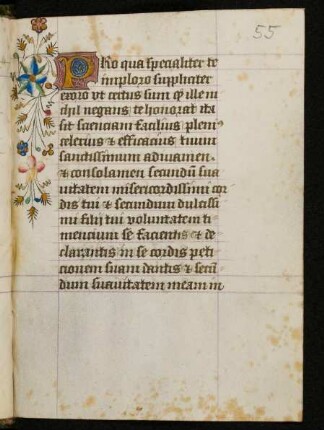 55
Pro qua specialiter te
imploro suppliciter
exoro vt certus sum qꝫ ille ni
chil negans te honorat ita
sit scienciam facilius pleni
celerius & efficacius tuum
sanctissimum adiuuamen
& consolamen secundū sua
uitatem misericordissimi cor
dis tui & secundum dulcissi
mi filij tui voluntatem ti
mencium se facientis & de
clarantis in se cordis peti
cionem suam dantis & secū
dum suauitatem meam in